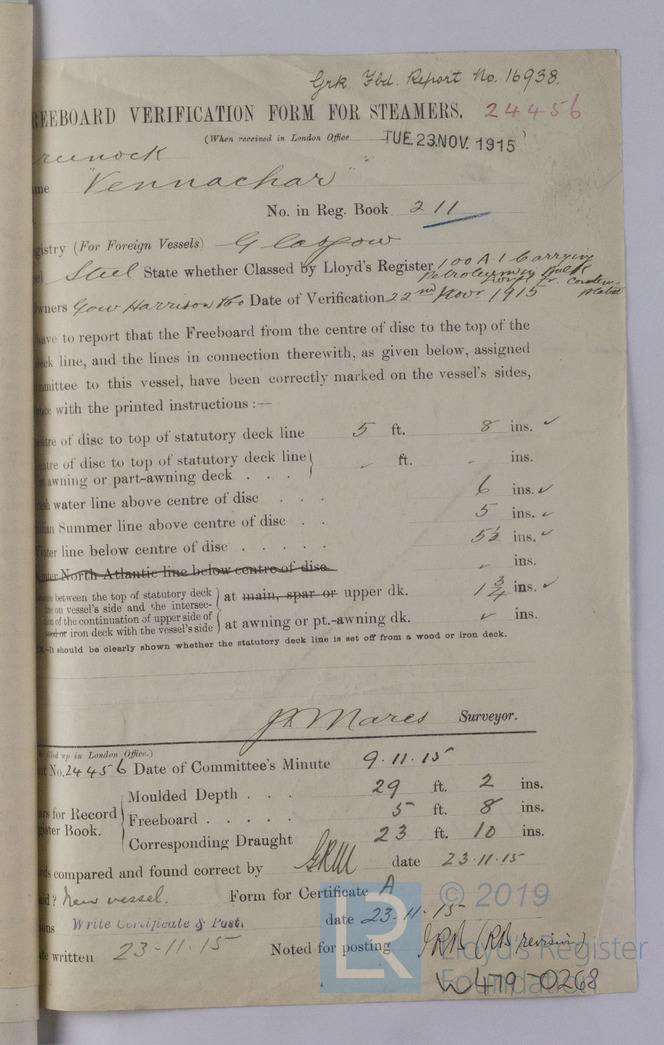 Grk Fbd. Report No. 16938.
REEBOARD VERIFICATION FORM FOR STEAMERS. 24456
(When received in London Office TUE. 23. NOV. 1915)
reenock
me "Vennachar"
No. in Reg. Book 211
gistry (For Foreign Vessels) Glasgow
el Steel State whether Classed by Lloyd's Register 100 A1 Carrying Petroleum in Bulk
wners Gow Harrison & Co Date of Verification 22nd Novr 1915
ave to report that the Freeboard from the centre of disc to the top of the
eck line, and the lines in connection therewith, as given below, assigned
mmittee to this vessel, have been correctly marked on the vessel's sides,
nce with the printed instructions :—
entre of disc to top of statutory deck line 5 ft. 8 ins. ✓
ntre of disc to top of statutory deck line
awning or part-awning deck . . . - ft. - ins.
sh water line above centre of disc . . . 6 ins. ✓
ian Summer line above centre of disc . . 5 ins. ✓
ter line below centre of disc . . . . . 5½ ins. ✓
nter North Atlantic line below centre of disc - ins.
ance between the top of statutory deck
ne on vessel's side and the intersec- at main, spar or upper dk. 1¾ ins. ✓
on of the continuation of upper side of
wood or iron deck with the vessel's side at awning or pt.-awning dk. ✓ ins.
—It should be clearly shown whether the statutory deck line is set off from a wood or iron deck.
Mares Surveyor.
filled up in London Office.)
rt No. 24456 Date of Committee's Minute 9.11.15
Moulded Depth . . . 29 ft. 2 ins.
ars for Record
ister Book. Freeboard . . . . . 5 ft. 8 ins.
Corresponding Draught 23 ft. 10 ins.
rds compared and found correct by GRM date 23.11.15
aid? New vessel. Form for Certificate A
ions Write Certificate & Post. date 23-11-15
te written 23-11-15 Noted for posting (RB revising)
© 2019
LR
Lloyd's Register
Foundation
W479-0268